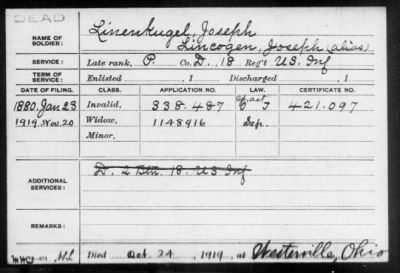 DEAD
NAME OF SOLDIER: Linenkugel, Joseph
Lincogen, Joseph (alias)
SERVICE: Late rank, P. Co. D, 18 Reg't U.S. Inf
TERM OF SERVICE: Enlisted , 1 Discharged , 1
DATE OF FILING. CLASS. APPLICATION NO. LAW. CERTIFICATE NO.
1880. Jan 23 Invalid, 338.487 421.097
1919. Nov. 20 Widow, 1148916 Sep.
Minor,
ADDITIONAL SERVICES: D. 2 Btn. 18. U.S Inf
REMARKS:
Died Oct. 24, 1919, at Westerville, Ohio